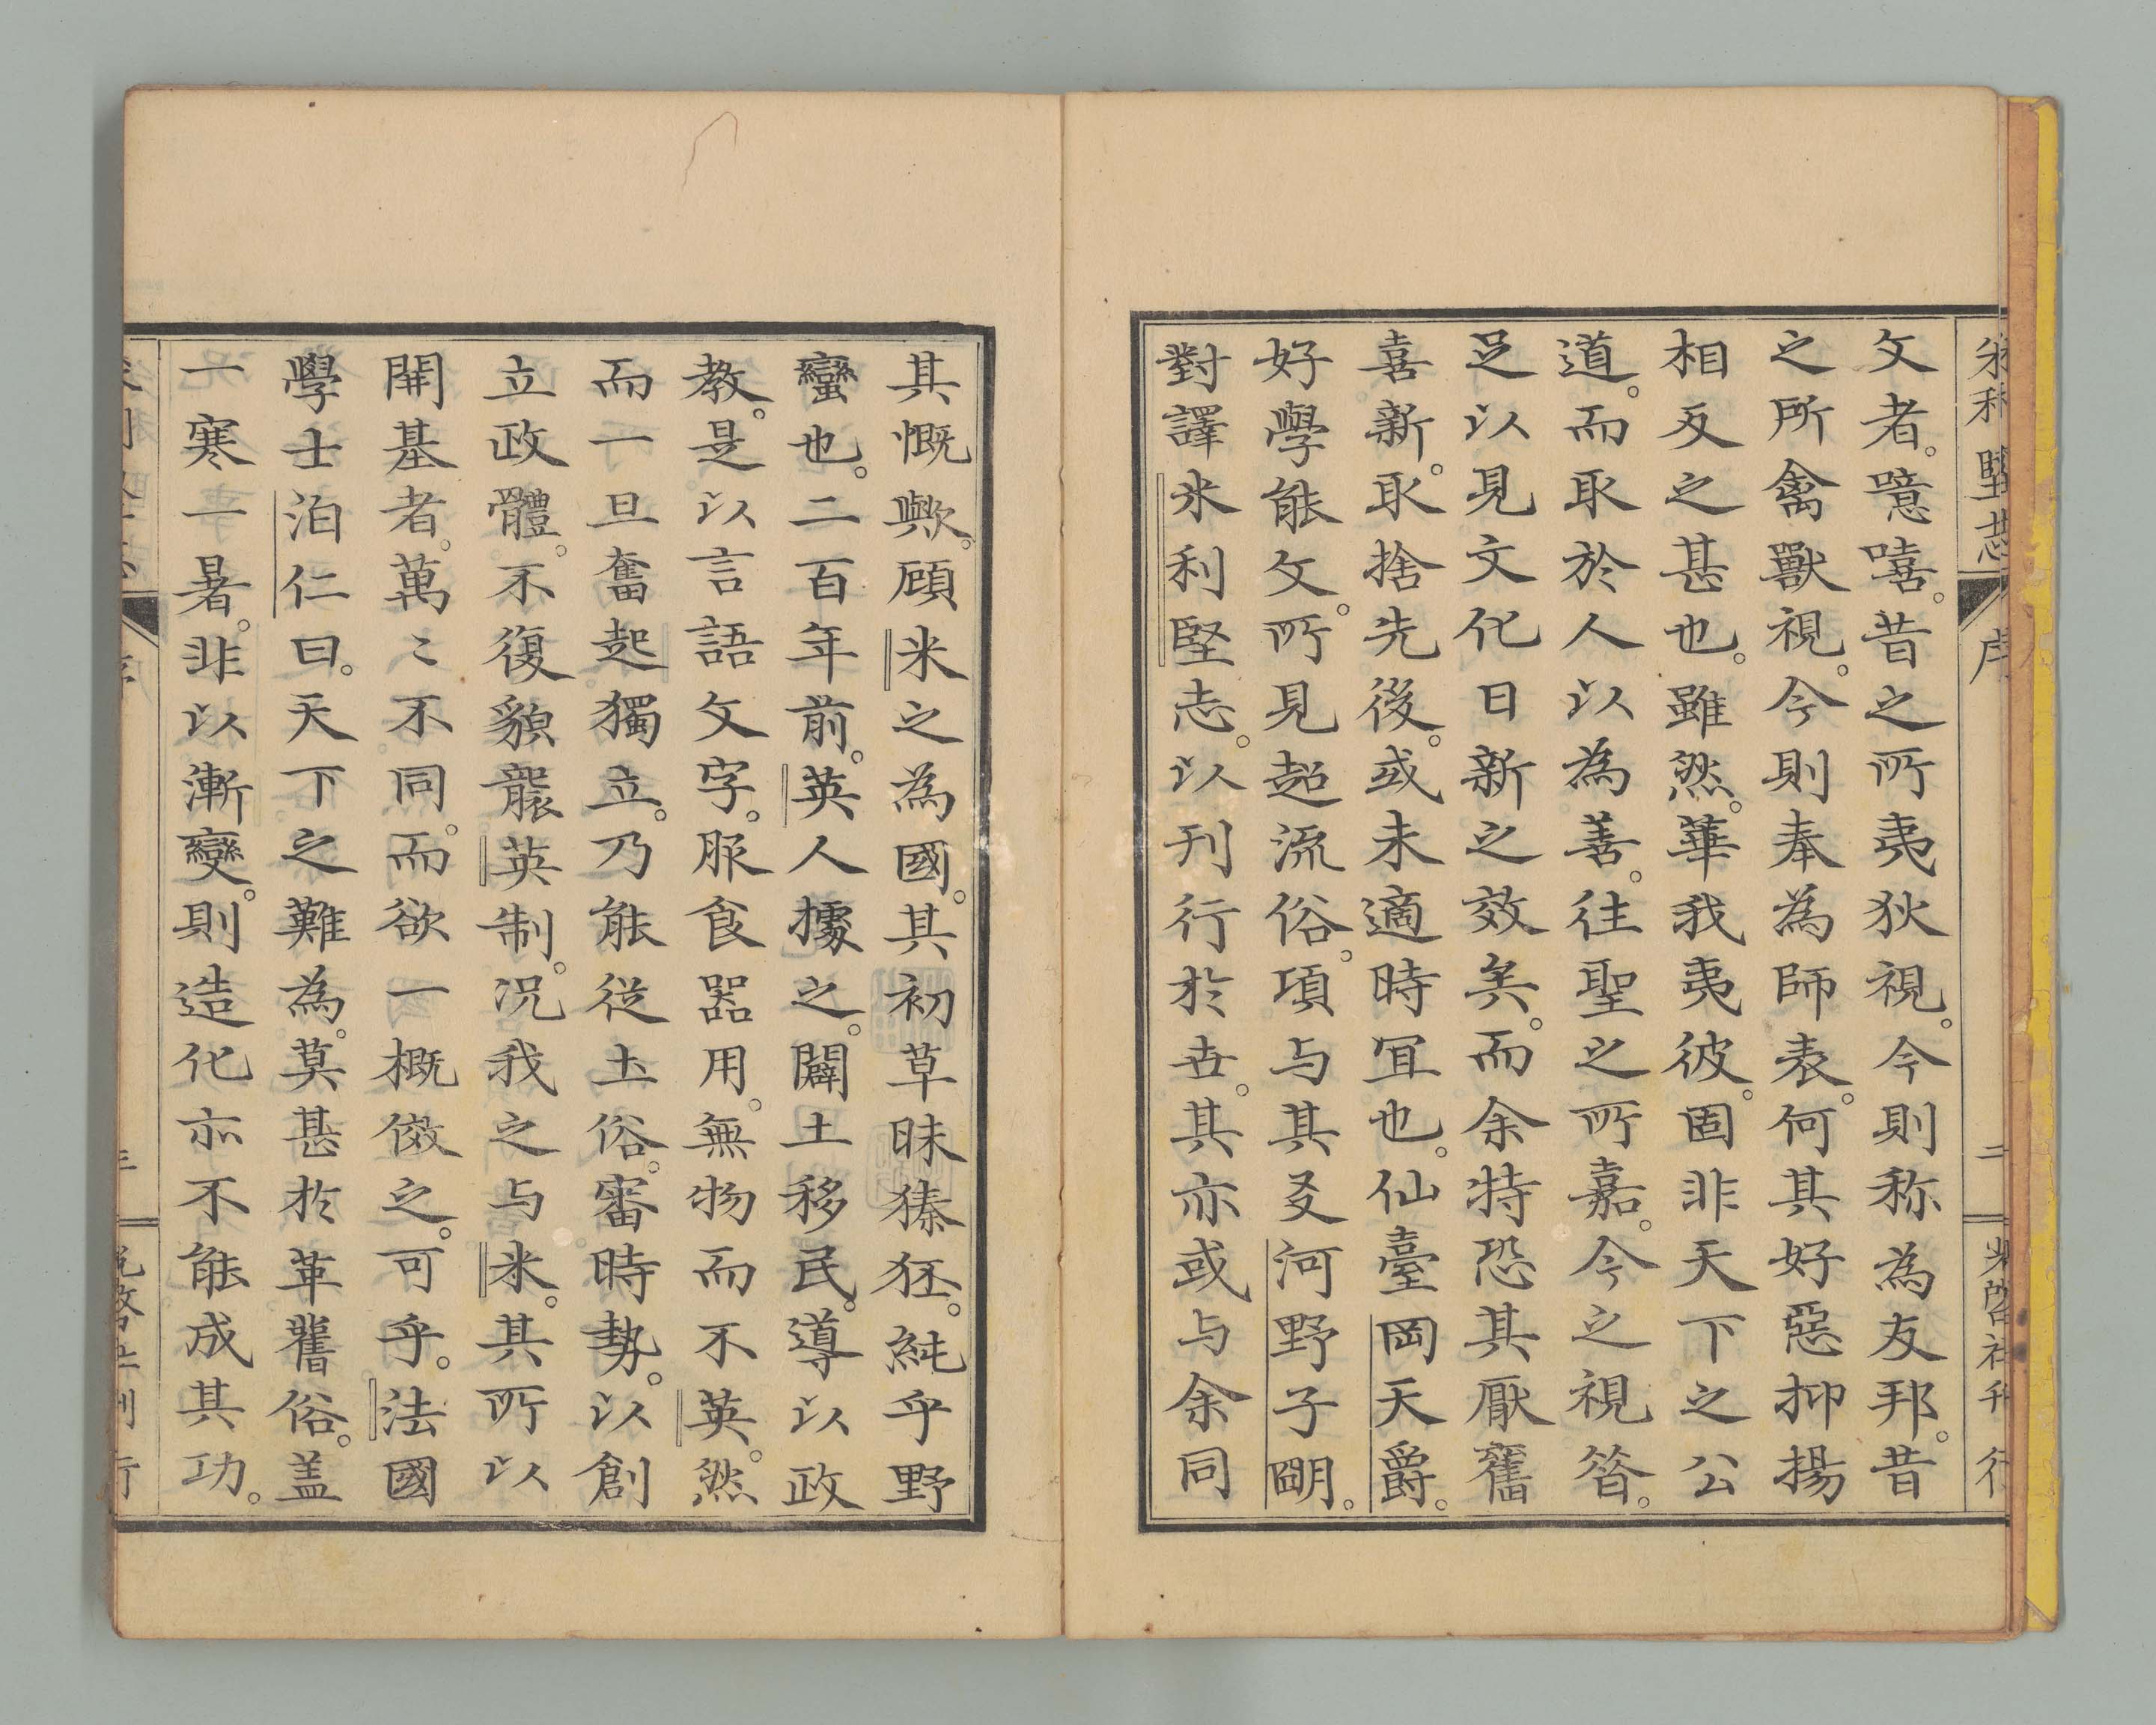 米利堅志
序
二
光啓社刊行
文者。噫嘻。昔之所夷狄視。今則称為友邦。昔
之所禽獸視。今則奉為師表。何其好惡抑揚
相反之甚也。雖然。華我夷彼。固非天下之公
道。而取於人以為善。往聖之所嘉。今之視昝。
足以見文化日新之效矣。而余特恐其厭舊
喜新。取捨先後。或未適時宜也。仙臺岡天爵。
好學能文。所見超流俗。項与其友河野子朙。
對譯米利堅志。以刊行於世。其亦或与余同
其慨歟。顧米之為國。其初草昧獉狉。純乎野
蠻也。二百年前。英人據之。闢土移民。導以政
教。是以言語文字。服食器用。無物而不英。然
而一旦奮起獨立。乃能從土俗。審時勢。以創
立政體。不復貌襲英制。況我之与米。其所以
開基者。萬〻不同。而欲一概傚之。可乎。法國
學士泊仁曰。天下之難為。莫甚於革舊俗。盖
一寒一暑。非以漸變。則造化亦不能成其功。
序
三